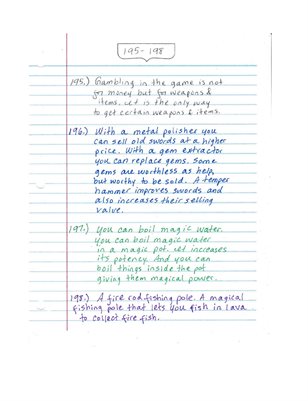 195-198
195.) Gambling in the game is not
for money but for weapons &
items. It is the only way
to get certain weapons & items.
196.) With a metal polisher you
can sell old swords at a higher
price. With a gem extractor
you can replace gems. Some
gems are worthless as help,
but worthy to be sold. A temper
hammer improves swords and
also increases their selling
value.
197.) You can boil magic water.
You can boil magic water
in a magic pot. It increases
its potency. And you can
boil things inside the pot
giving them magical power.
198.) A fire rod fishing pole. A magical
fishing pole that lets you fish in lava
to collect fire fish.